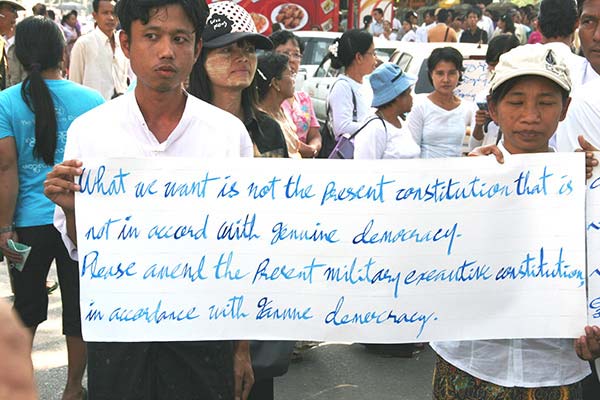 What we want is not the Present constitution that is
not in accord with genuine democracy.
Please amend the Present military executive constitution,
in accordance with Genuine democracy.